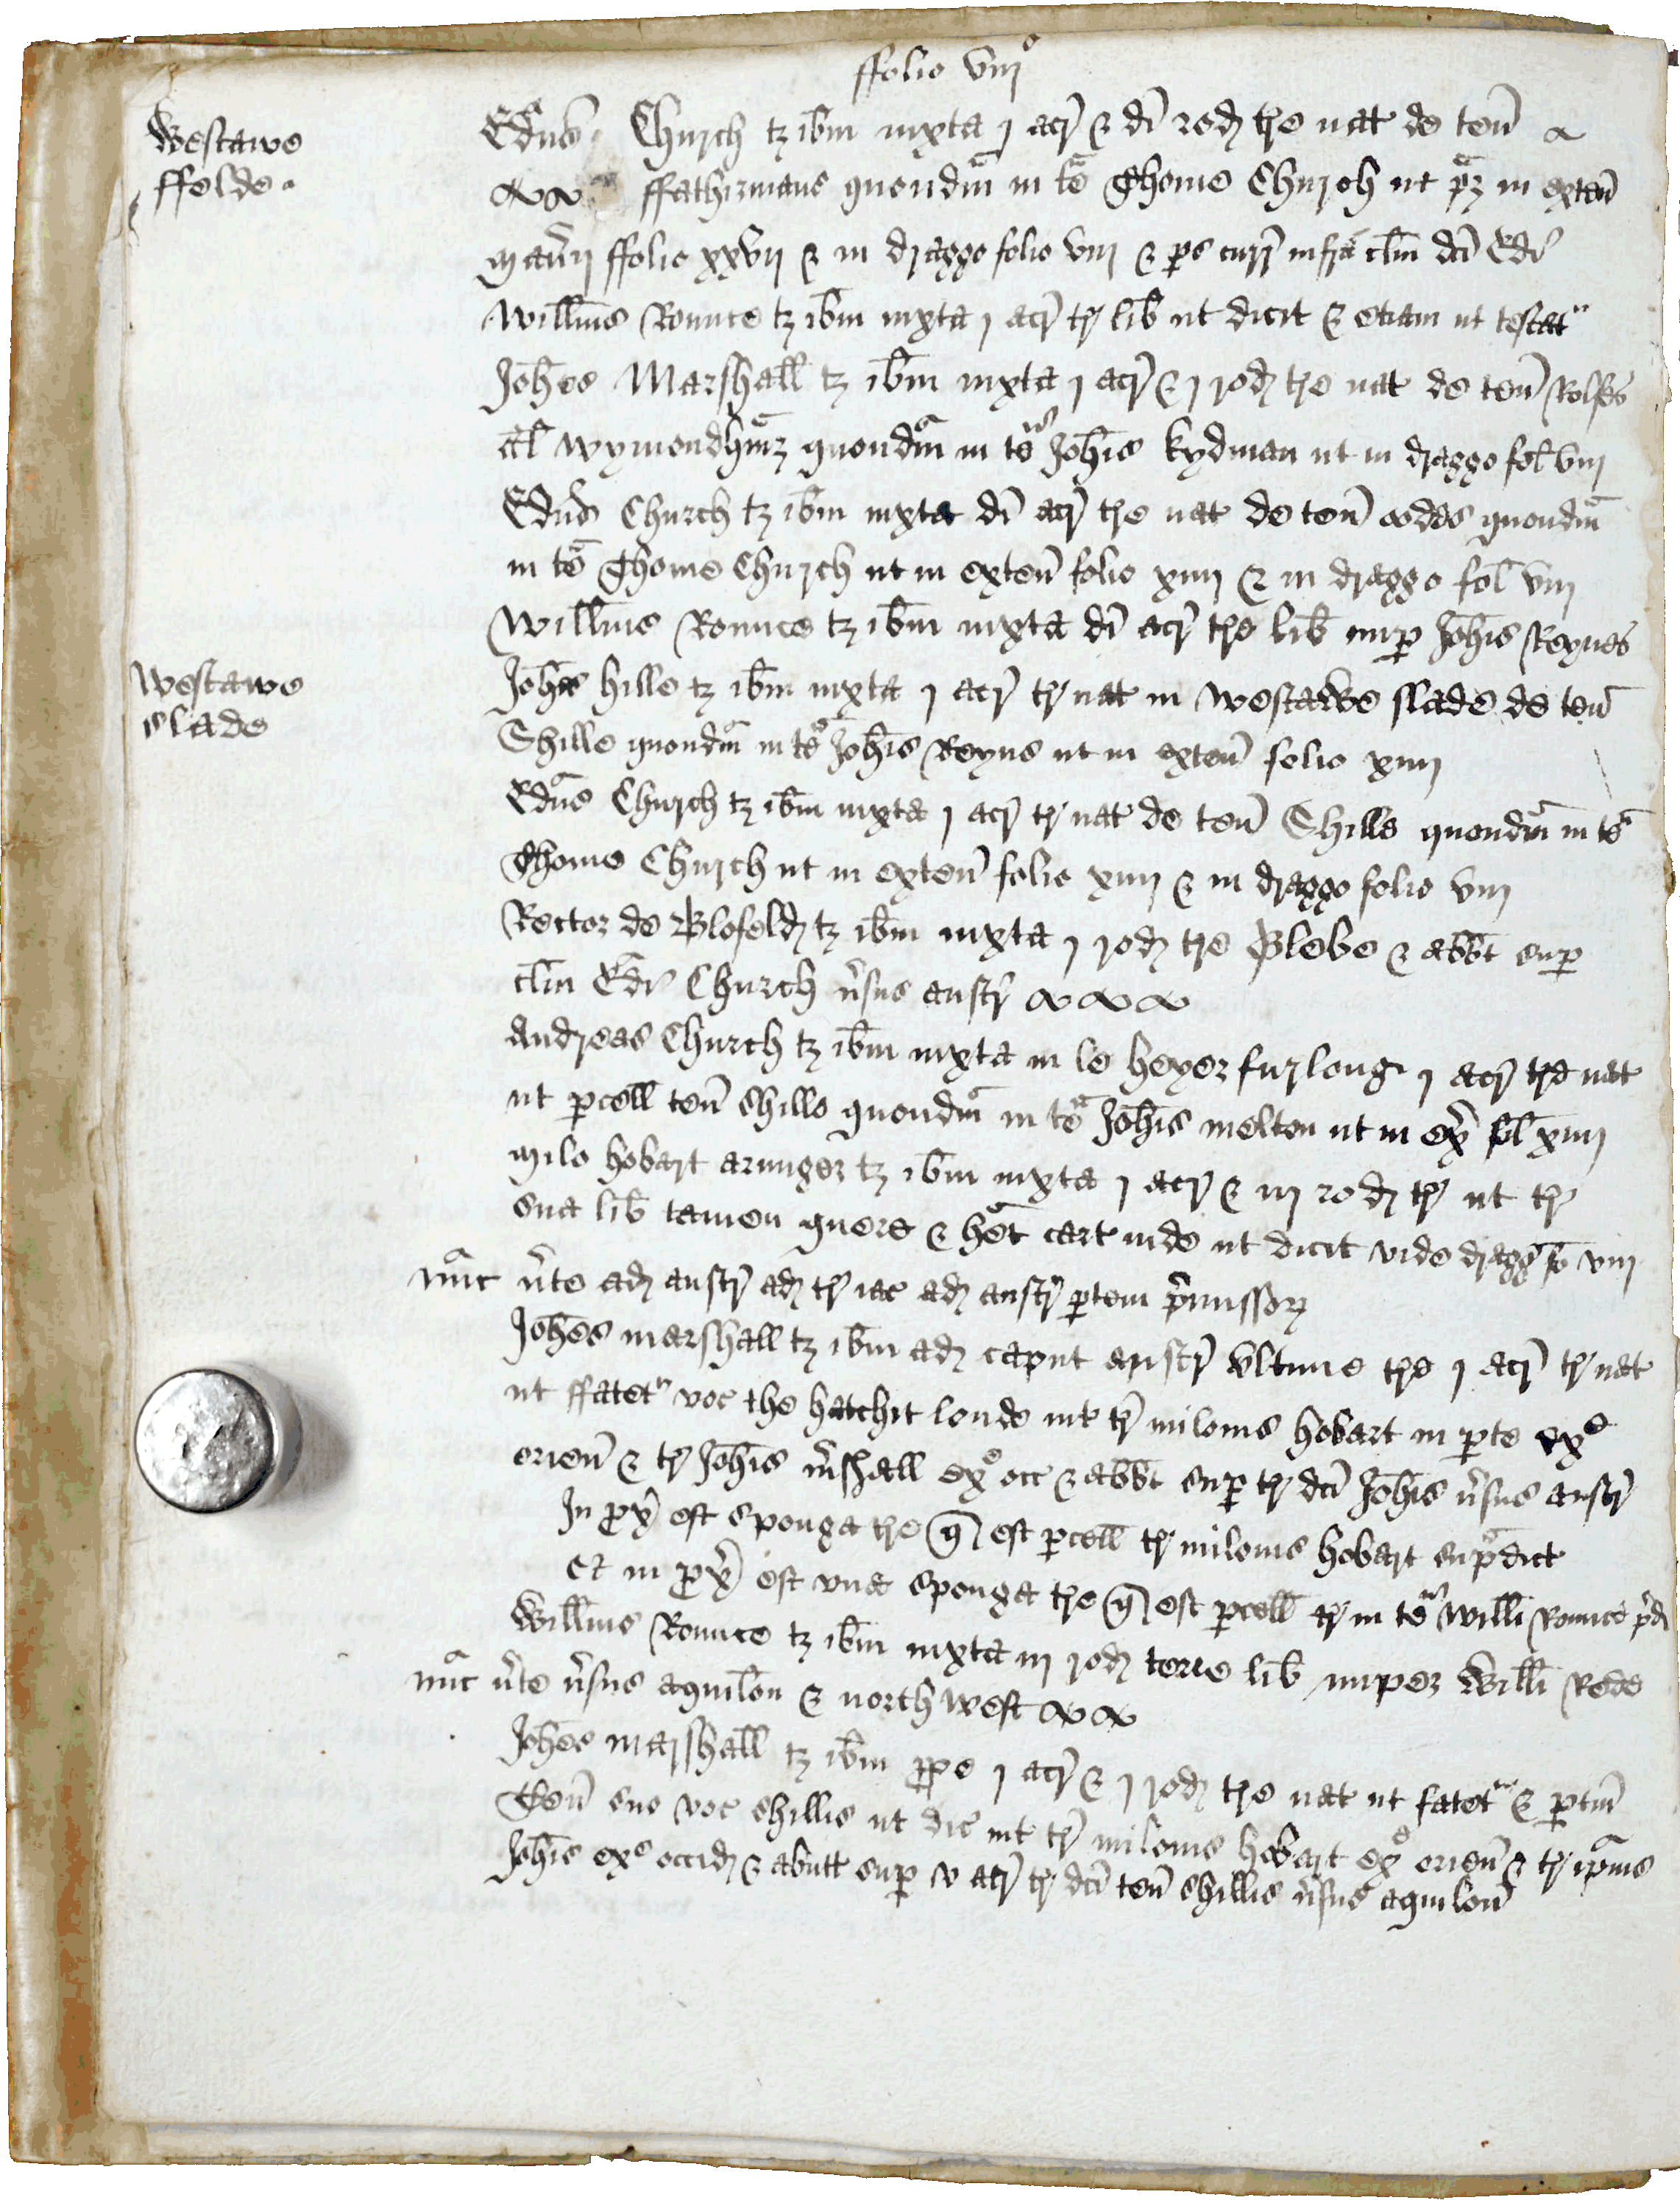 ffolio viijº
Westawe
ffelde.
Edus Church tz ibm iuxta j acr & di rod tre nat de ten
ffathirmans quondm in te Thome Church ut pz in exten
Manij ffolio xxvij & in dragge folio viij & ps curr infra clm dci Edi
Willms Rounce tz ibm iuxta j acr tr lib ut dicit & etiam ut testat
Johes Marshall tz ibm iuxta j acr & j rod tre nat de ten Rolfes
al Wymondhmz quondm in te Johis kydman ut in dragge fol viij
Edus Church tz ibm iuxta di acr tre nat de ten oodes quondm
in te Thome Church ut in exten folio xiiij & in dragge fol viij
Willms Rounce tz ibm iuxta di acr tre lib nup Johis Reynes
Westawe
slade
Johes hille tz ibm iuxta j acr tr nat in Westawe slade de ten
Shille quondm in te Johis Reyns ut in exten folio xiiij
Edus Church tz ibm iuxta j acr tr nat de ten Shills quondm in te
Thome Church ut in exten folio xiiij & in dragge folio viij
Rector de Blofeld tz ibm iuxta j rod tre Glebe & abbt sup
clm Edi Church vsus austr
Andreas Church tz ibm iuxta in le heyer furlong j acr tre nat
ut pcell ten shills quondm in te Johis melton ut in ex fol xiiij
Milo hobart armiger tz ibm iuxta j acr & iij rod tr ut tr
sua lib tamen quere & het cart inde ut dicit vide dragg fo viij
nuc vte ad austr ad tr iac ad austr ptem pmissor
Johes marshall tz ibm ad caput austr vltime tre j acr tr nat
ut ffatet voc the hatchit londe int tr milonis hobart in pte exº
orien & tr Johis mshall exº occ & abbt sup tr dci Johis vsus austr
In px est sponga tre q est pcell tr milonis hobart supadict
Et in px est una sponga tre q est pcell tr in te Willi Rounce pd
Willms Rounce tz ibm iuxta iij rod terre lib nuper Willi Rede
nuc vte vsus aquilon & north west
Johes marshall tz ibm ppe j acr & j rod tre nat ut fatet & ptin
Ten suo voc shillis ut dic int tr milonis hobart exº orien & tr ipius
Johis exº occid & abutt sup v acr tr dci ten shillis vsus aquilon